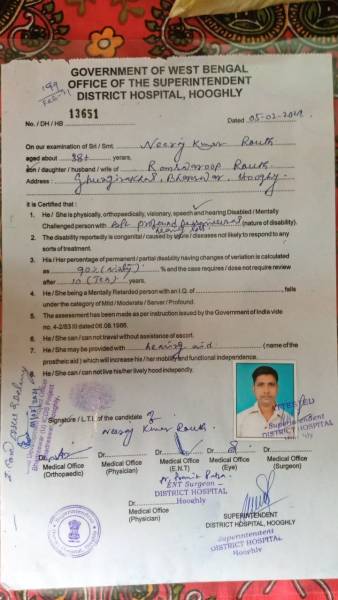 GOVERNMENT OF WEST BENGAL
OFFICE OF THE SUPERINTENDENT
DISTRICT HOSPITAL, HOOGHLY
13651
No. / DH / HB
Dated 05-02-
On our examination of Sri / Smt. Neeraj Kumar Routh
aged about years,
son / daughter / husband / wife of Ramswaroop Routh
Address : Hooghly
It is Certified that :
1. He / She is physically, orthopaedically, visionary, speech and hearing Disabled / Mentally
Challenged person with profound hearing loss (nature of disability).
2. The disability reportedly is congenital / caused by / diseases not likely to respond to any
sorts of treatment.
3. His / Her percentage of permanent / partial disability having changes of variation is calculated
as 90% (Ninty) % and the case requires / dose not require review
after 10 (Ten) years.
4. He / She being a Mentally Retarded person with an I.Q. of , fells
under the category of Mild / Moderate / Server / Profound.
5. The assessment has been made as per instruction issued by the Government of India vide
no. 4-2/83 III dated 06.08.1986.
6. He / She can / can not travel without assistance of escort.
7. He / She may be provided with hearing aid (name of the
prosthetic aid ) which will increase his / her mobility and functional independence.
8. He / She can / can not live his / her lively hood independently.
ATTESTED
Superintendent
Signature / L.T.I. of the candidate
Neeraj Kumar Routh
Dr. Dr. Dr. Dr. Dr.
Medical Office Medical Office Medical Office Medical Office Medical Office
(Orthopaedic) (Physician) (E.N.T) (Eye) (Surgeon)
ENT Surgeon
DISTRICT HOSPITAL
Hooghly
Dr.
Medical Office
(Physician)
SUPERINTENDENT
DISTRICT HOSPITAL, HOOGHLY
Superintendent
DISTRICT HOSPITAL
Hooghly